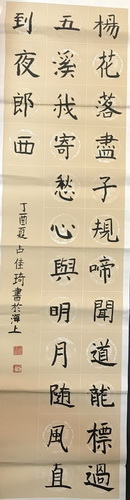 楊花落盡子規啼聞道龍標過
五溪我寄愁心與明月随風直
到夜郎西
丁酉夏占佳琦書於澤上